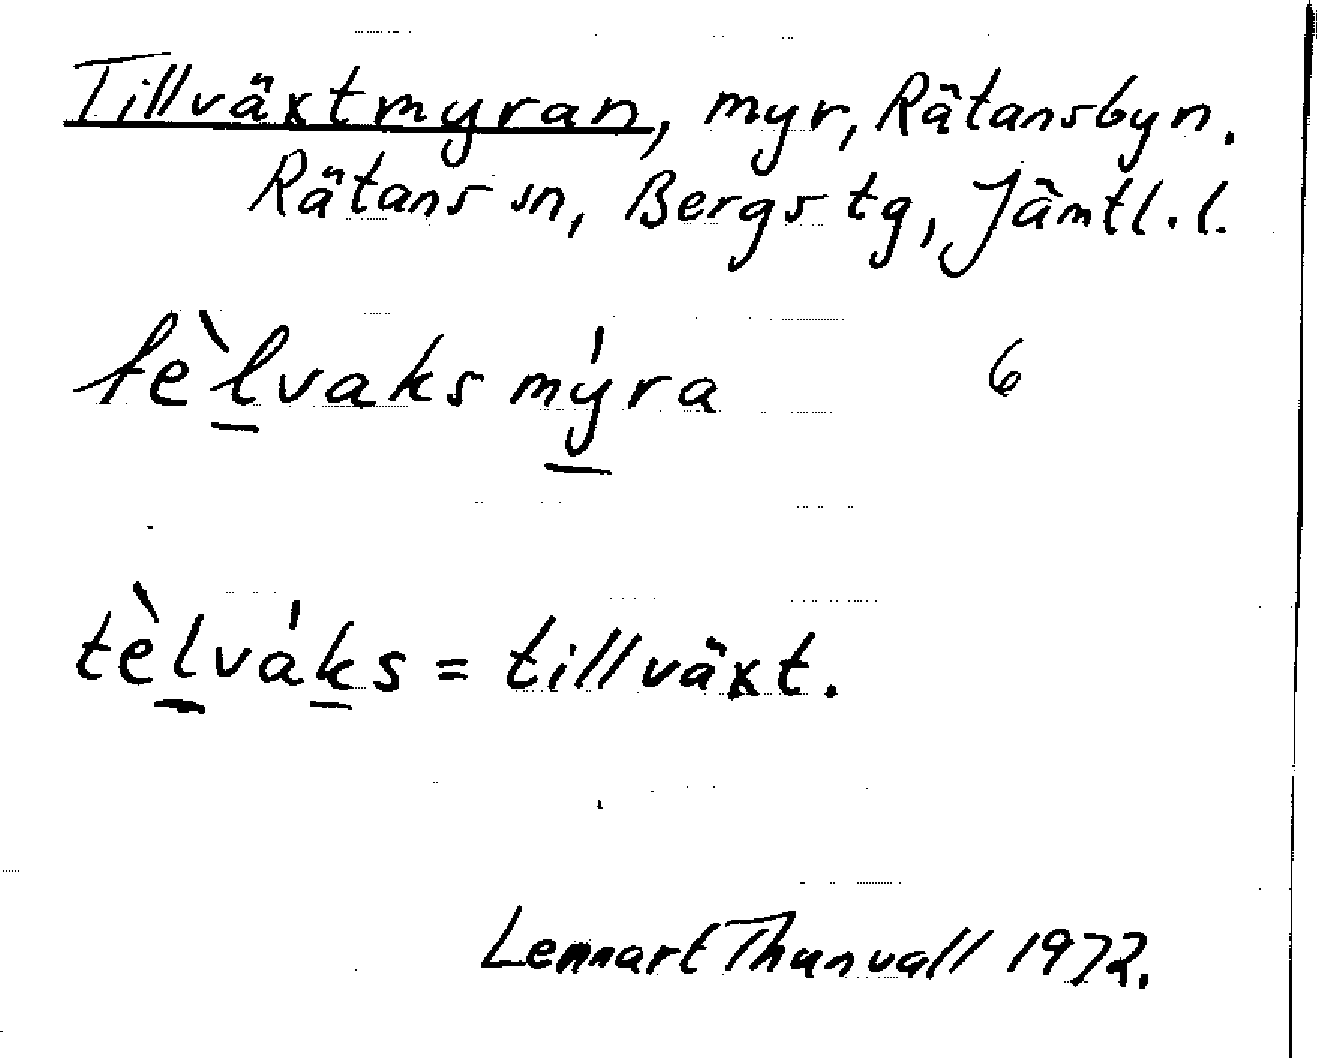 Tillväxtmyran, myr, Rätansbyn.
Rätans sn, Bergs tg, Jämtl. l.
tèl̲vaks mý̲ra 6
tèl̲vák̲s = tillväxt.
Lennart Thunvall 1972.